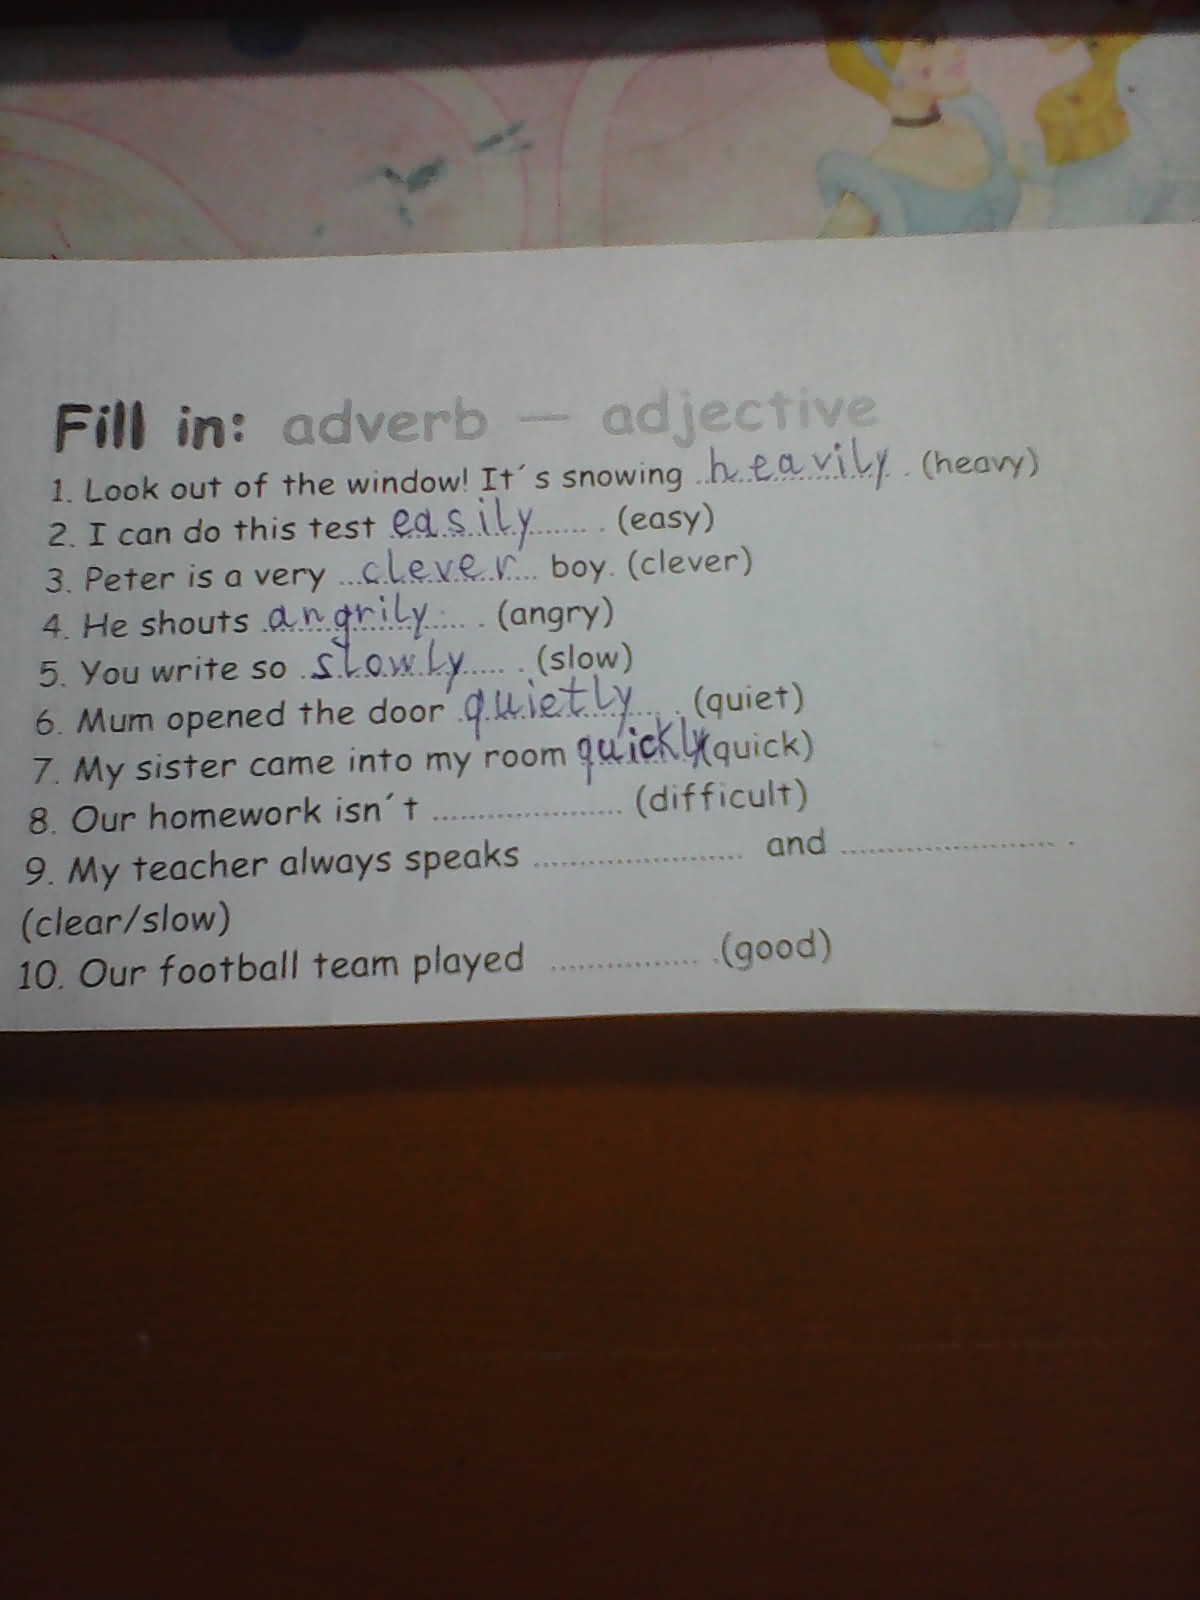 Fill in: adverb — adjective
1. Look out of the window! It´s snowing ..heavily.. . (heavy)
2. I can do this test easily........ . (easy)
3. Peter is a very ...clever... boy. (clever)
4. He shouts .angrily..... . (angry)
5. You write so .slowly..... . (slow)
6. Mum opened the door .quietly... . (quiet)
7. My sister came into my room quickly (quick)
8. Our homework isn´t .................... (difficult)
9. My teacher always speaks ...................... and ....................... .
(clear/slow)
10. Our football team played ................ .(good)